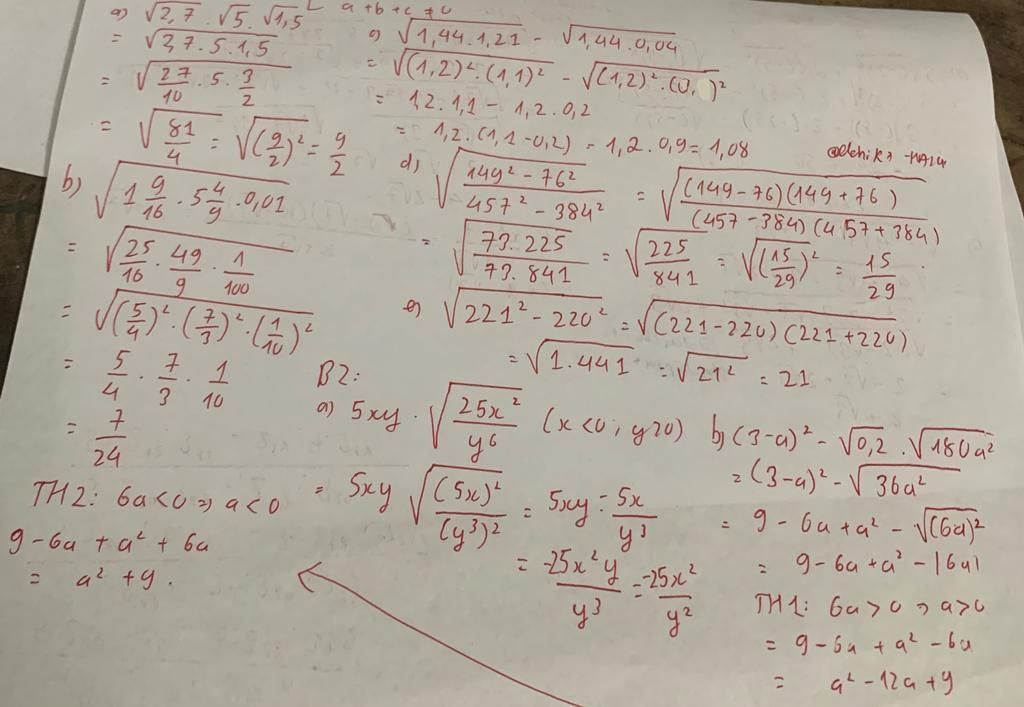 a) √2,7 . √5 . √1,5
a + b + c ≠ 0
= √2,7 . 5 . 1,5
= √27/10 . 5 . 3/2
= √81/4 = √(9/2)² = 9/2
b) √1 9/16 . 5 4/9 . 0,01
= √25/16 . 49/9 . 1/100
= √(5/4)² . (7/3)² . (1/10)²
= 5/4 . 7/3 . 1/10
= 7/24
√1,44 . 1,21 - √1,44 . 0,04
= √(1,2)² . (1,1)² - √(1,2)² . (0, )²
= 1,2 . 1,1 - 1,2 . 0,2
= 1,2 . (1,1 - 0,2) = 1,2 . 0,9 = 1,08
d) √149² - 76²/457² - 384² = √(149 - 76)(149 + 76)/(457 - 384)(457 + 384)
= √73 . 225/73 . 841 = √225/841 = √(15/29)² = 15/29 .
e) √221² - 220² = √(221 - 220)(221 + 220)
= √1 . 441 = √21² = 21
B2:
a) 5xy . √25x²/y⁶ (x < 0 ; y > 0)
= 5xy √(5x)²/(y³)² = 5xy - 5x/y³
= -25x²y/y³ = -25x²/y²
b) (3 - a)² - √0,2 . √180a²
= (3 - a)² - √36a²
= 9 - 6a + a² - √(6a)²
= 9 - 6a + a² - |6a|
TH1: 6a > 0 => a > 0
= 9 - 6a + a² - 6a
= a² - 12a + 9
TH2: 6a < 0 => a < 0
9 - 6a + a² + 6a
= a² + 9 .